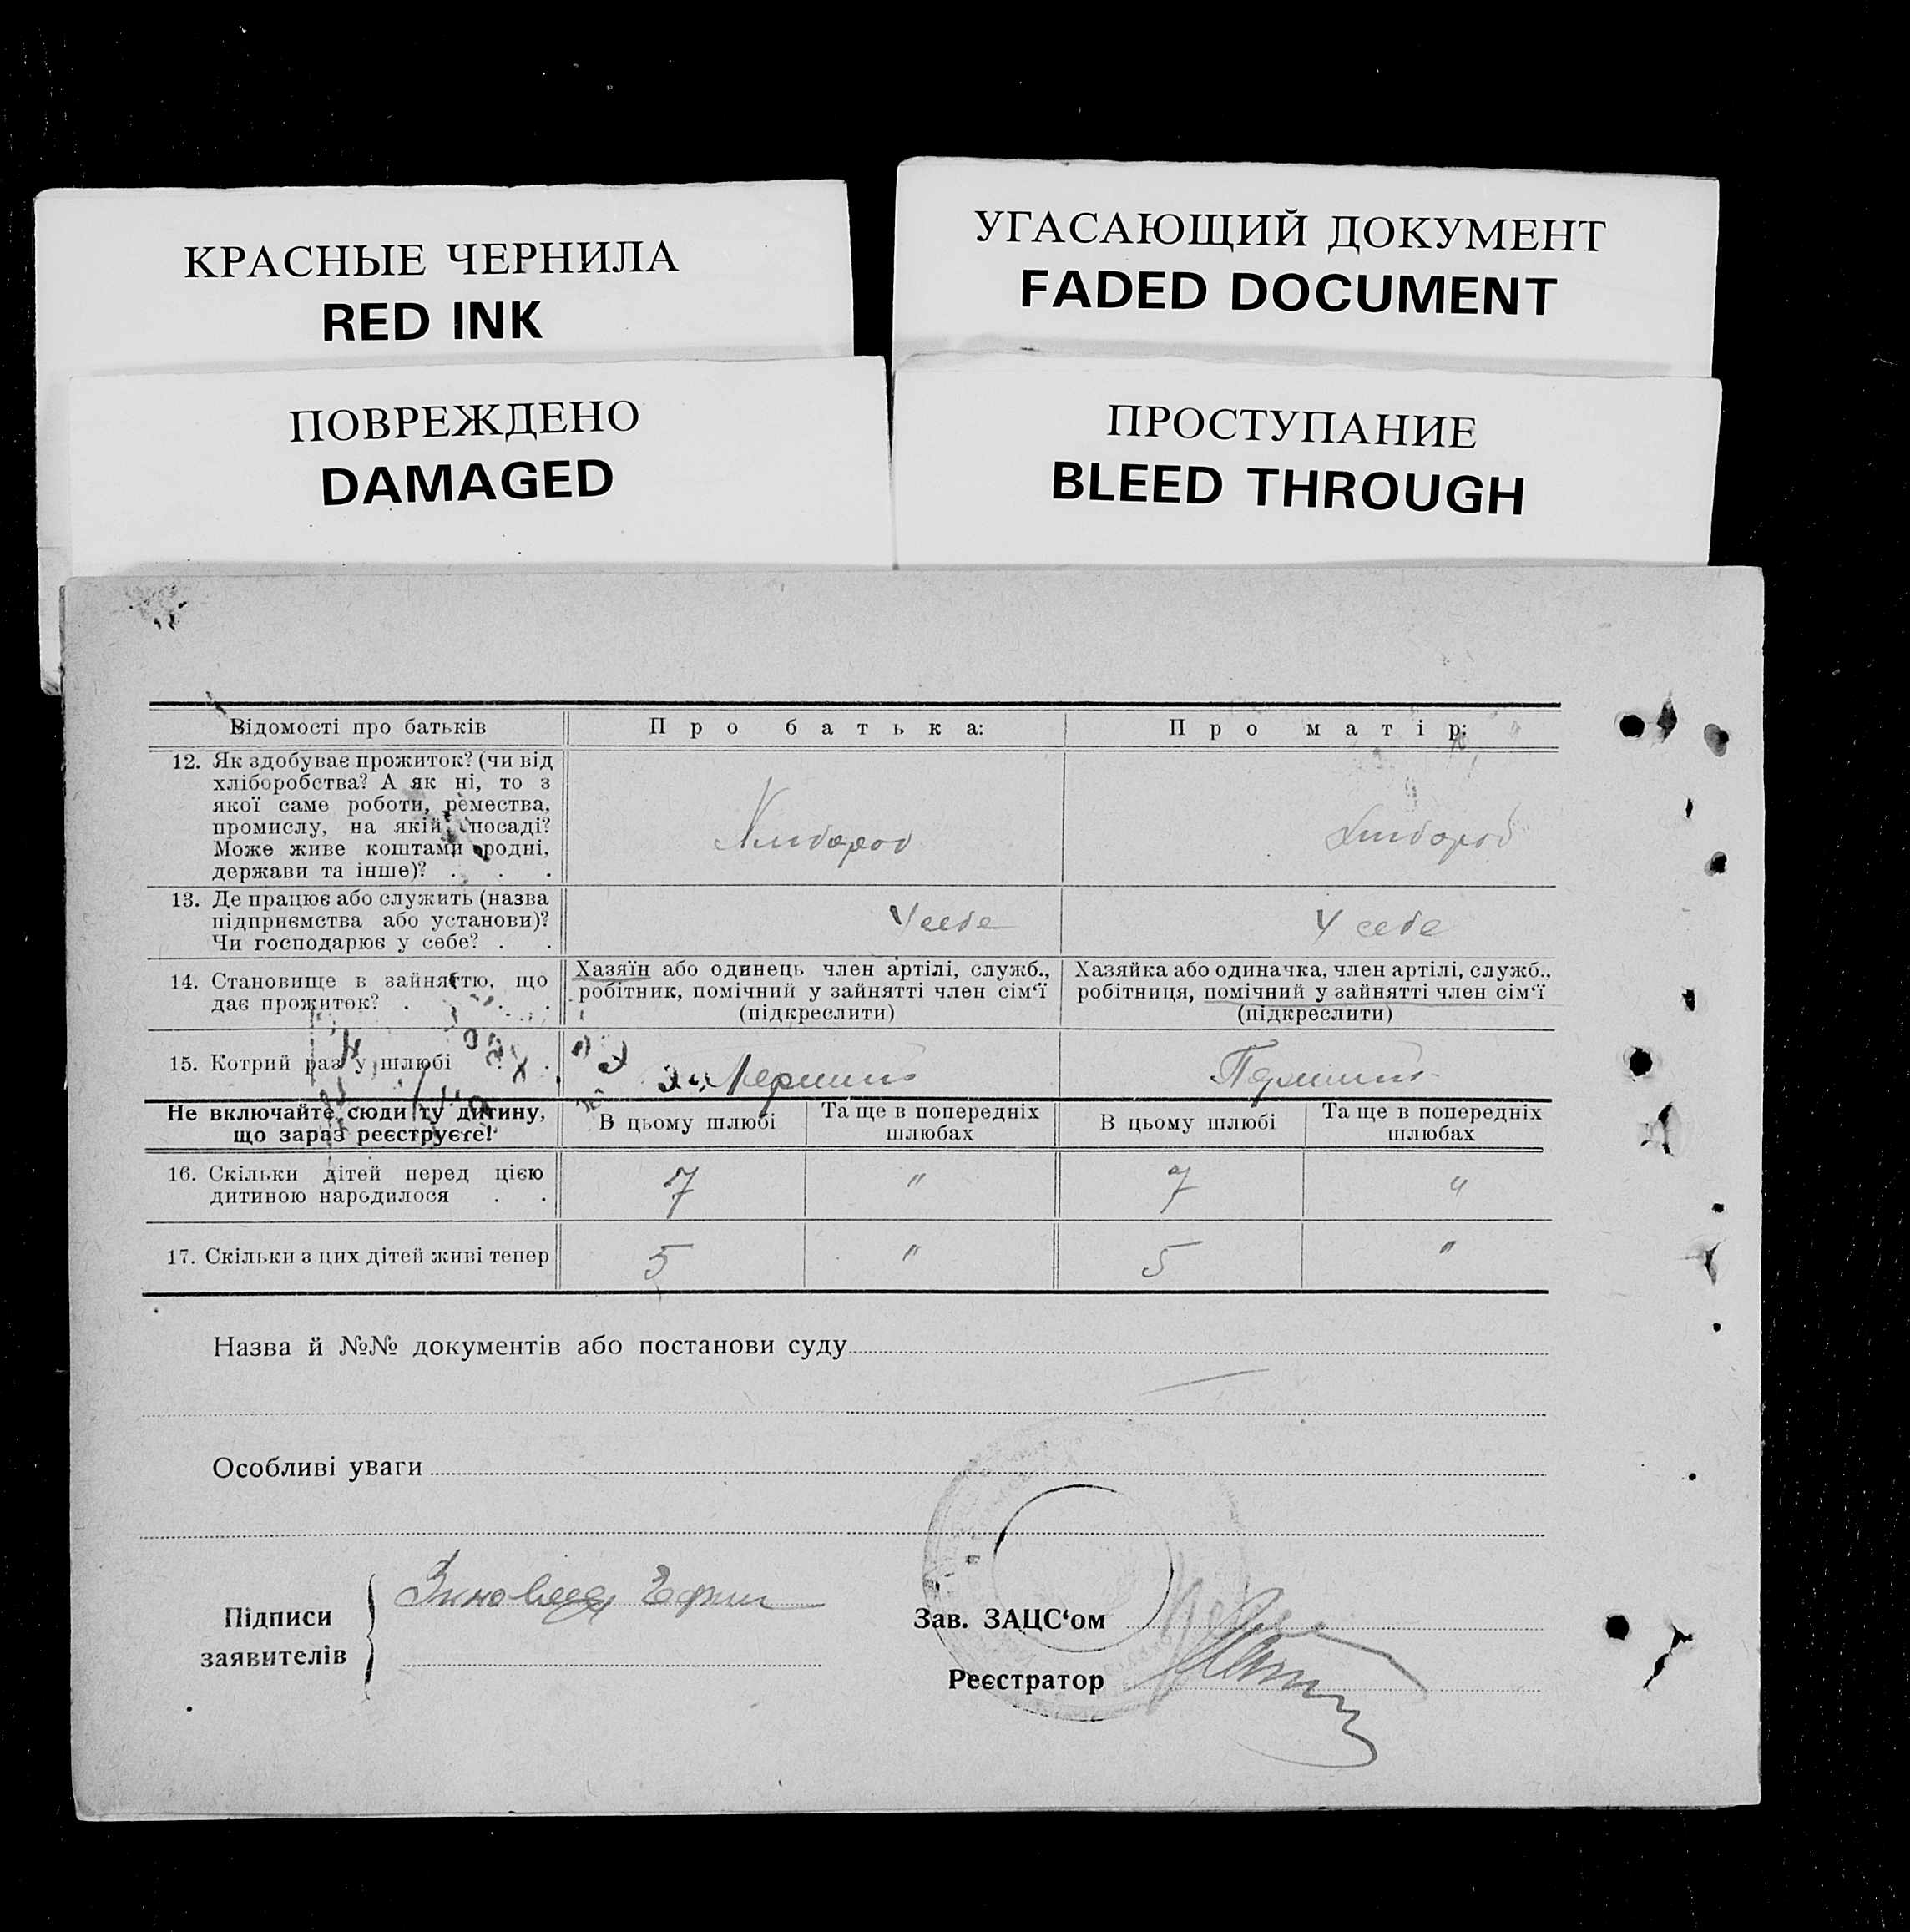 КРАСНЫЕ ЧЕРНИЛА
RED INK
УГАСАЮЩИЙ ДОКУМЕНТ
FADED DOCUMENT
ПОВРЕЖДЕНО
DAMAGED
ПРОСТУПАНИЕ
BLEED THROUGH
Відомості про батьків
Про батька:
Про матір:
12. Як здобуває прожиток? (чи від
хліборобства? А як ні, то з
якої саме роботи, ремества,
промислу, на якій посаді?
Може живе коштами родні,
держави та інше)? . . .
Хлибороб
Хлибороб
13. Де працює або служить (назва
підприємства або установи)?
Чи господарює у себе? . .
У себе
У себе
14. Становище в зайняттю, що
дає прожиток? . . .
Хазяїн або одинець член артілі, служб.,
робітник, помічний у зайнятті член сім'ї
(підкреслити)
Хазяйка або одиначка, член артілі, служб.,
робітниця, помічний у зайнятті член сім'ї
(підкреслити)
15. Котрий раз у шлюбі . .
Первий
Первий
Не включайте сюди ту дитину,
що зараз реєструєте!
В цьому шлюбі
Та ще в попередніх
шлюбах
В цьому шлюбі
Та ще в попередніх
шлюбах
16. Скільки дітей перед цією
дитиною народилося . .
7
"
7
"
17. Скільки з цих дітей живі тепер
5
"
5
"
Назва й №№ документів або постанови суду
Особливі уваги
Підписи
заявителів
Зав. ЗАЦС'ом
Реєстратор